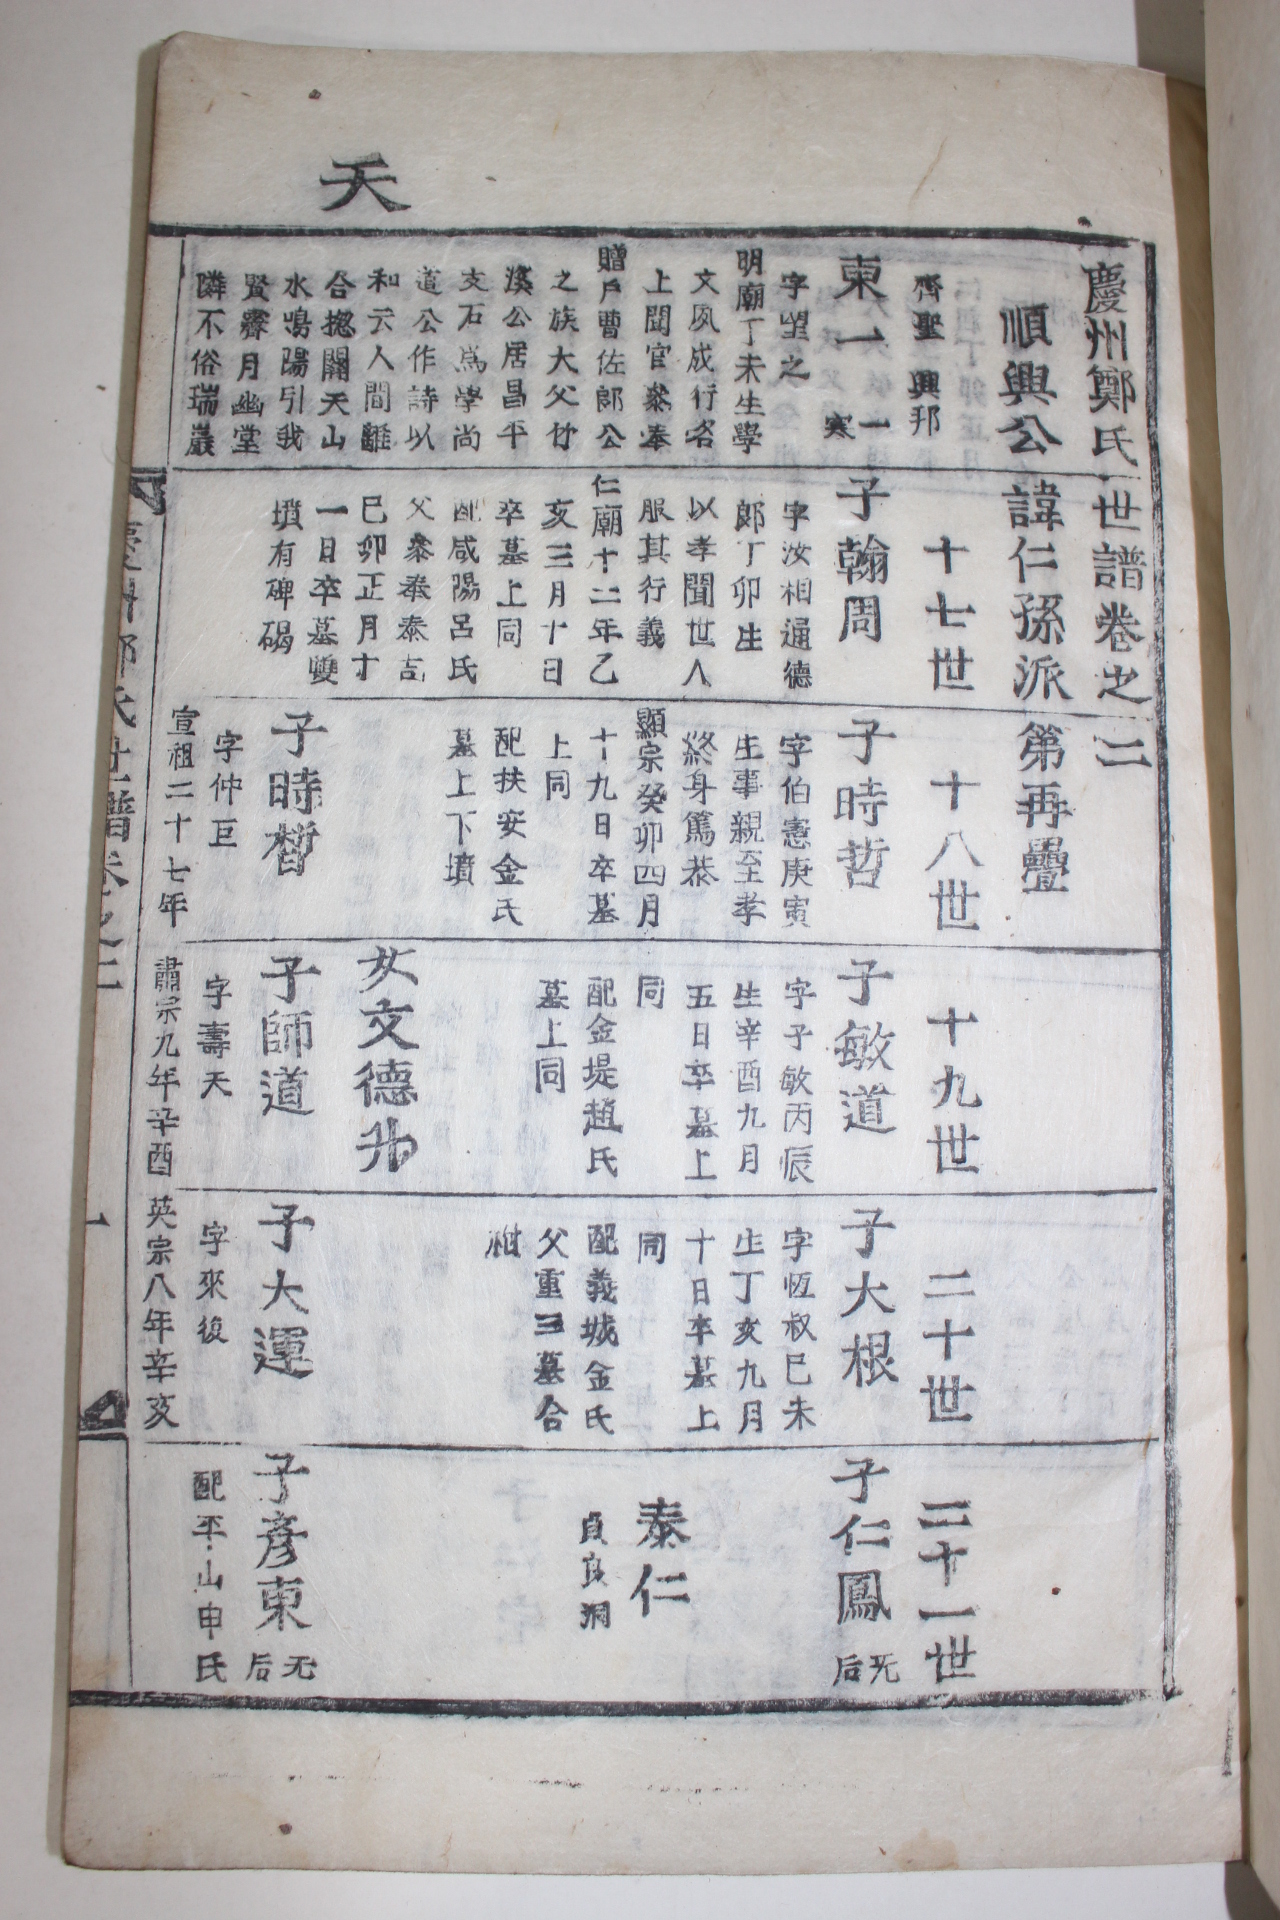 天
慶州鄭氏世譜卷之二
順興公諱仁孫派 第再疊
齊聖 興邦
十七世
十八世
十九世
二十世
二十一世
東一 一寒
字望之
明廟丁未生學
文夙成行名
上聞官叅奉
贈戶曹佐郞公
之族大父竹
溪公居昌平
支石爲學尚
道公作詩以
和云人間離
合揔關天山
水鳴陽引我
賢霽月幽堂
隣不俗瑞巖
子翰周
字汝相通德
郞丁卯生
以孝聞世人
服其行義
仁廟十二年乙
亥三月十日
卒墓上同
配咸陽呂氏
父叅奉泰吉
巳卯正月十
一日卒墓雙
墳有碑碣
子時哲
字伯憲庚寅
生事親至孝
終身篤恭
顯宗癸卯四月
十九日卒墓
上同
配扶安金氏
墓上下墳
子時晳
字仲叵
宣祖二十七年
子敏道
字子敏丙辰
生辛酉九月
五日卒墓上
同
配金堤趙氏
墓上同
女文德升
子師道
字壽天
肅宗九年辛酉
子大根
字恆叔巳未
生丁亥九月
十日卒墓上
同
配義城金氏
父重三墓合
祔
子大運
字來復
英宗八年辛亥
子仁鳳 无后
泰仁
貞良洞
子彥東 无后
配平山申氏
慶州鄭氏世譜卷之二
一